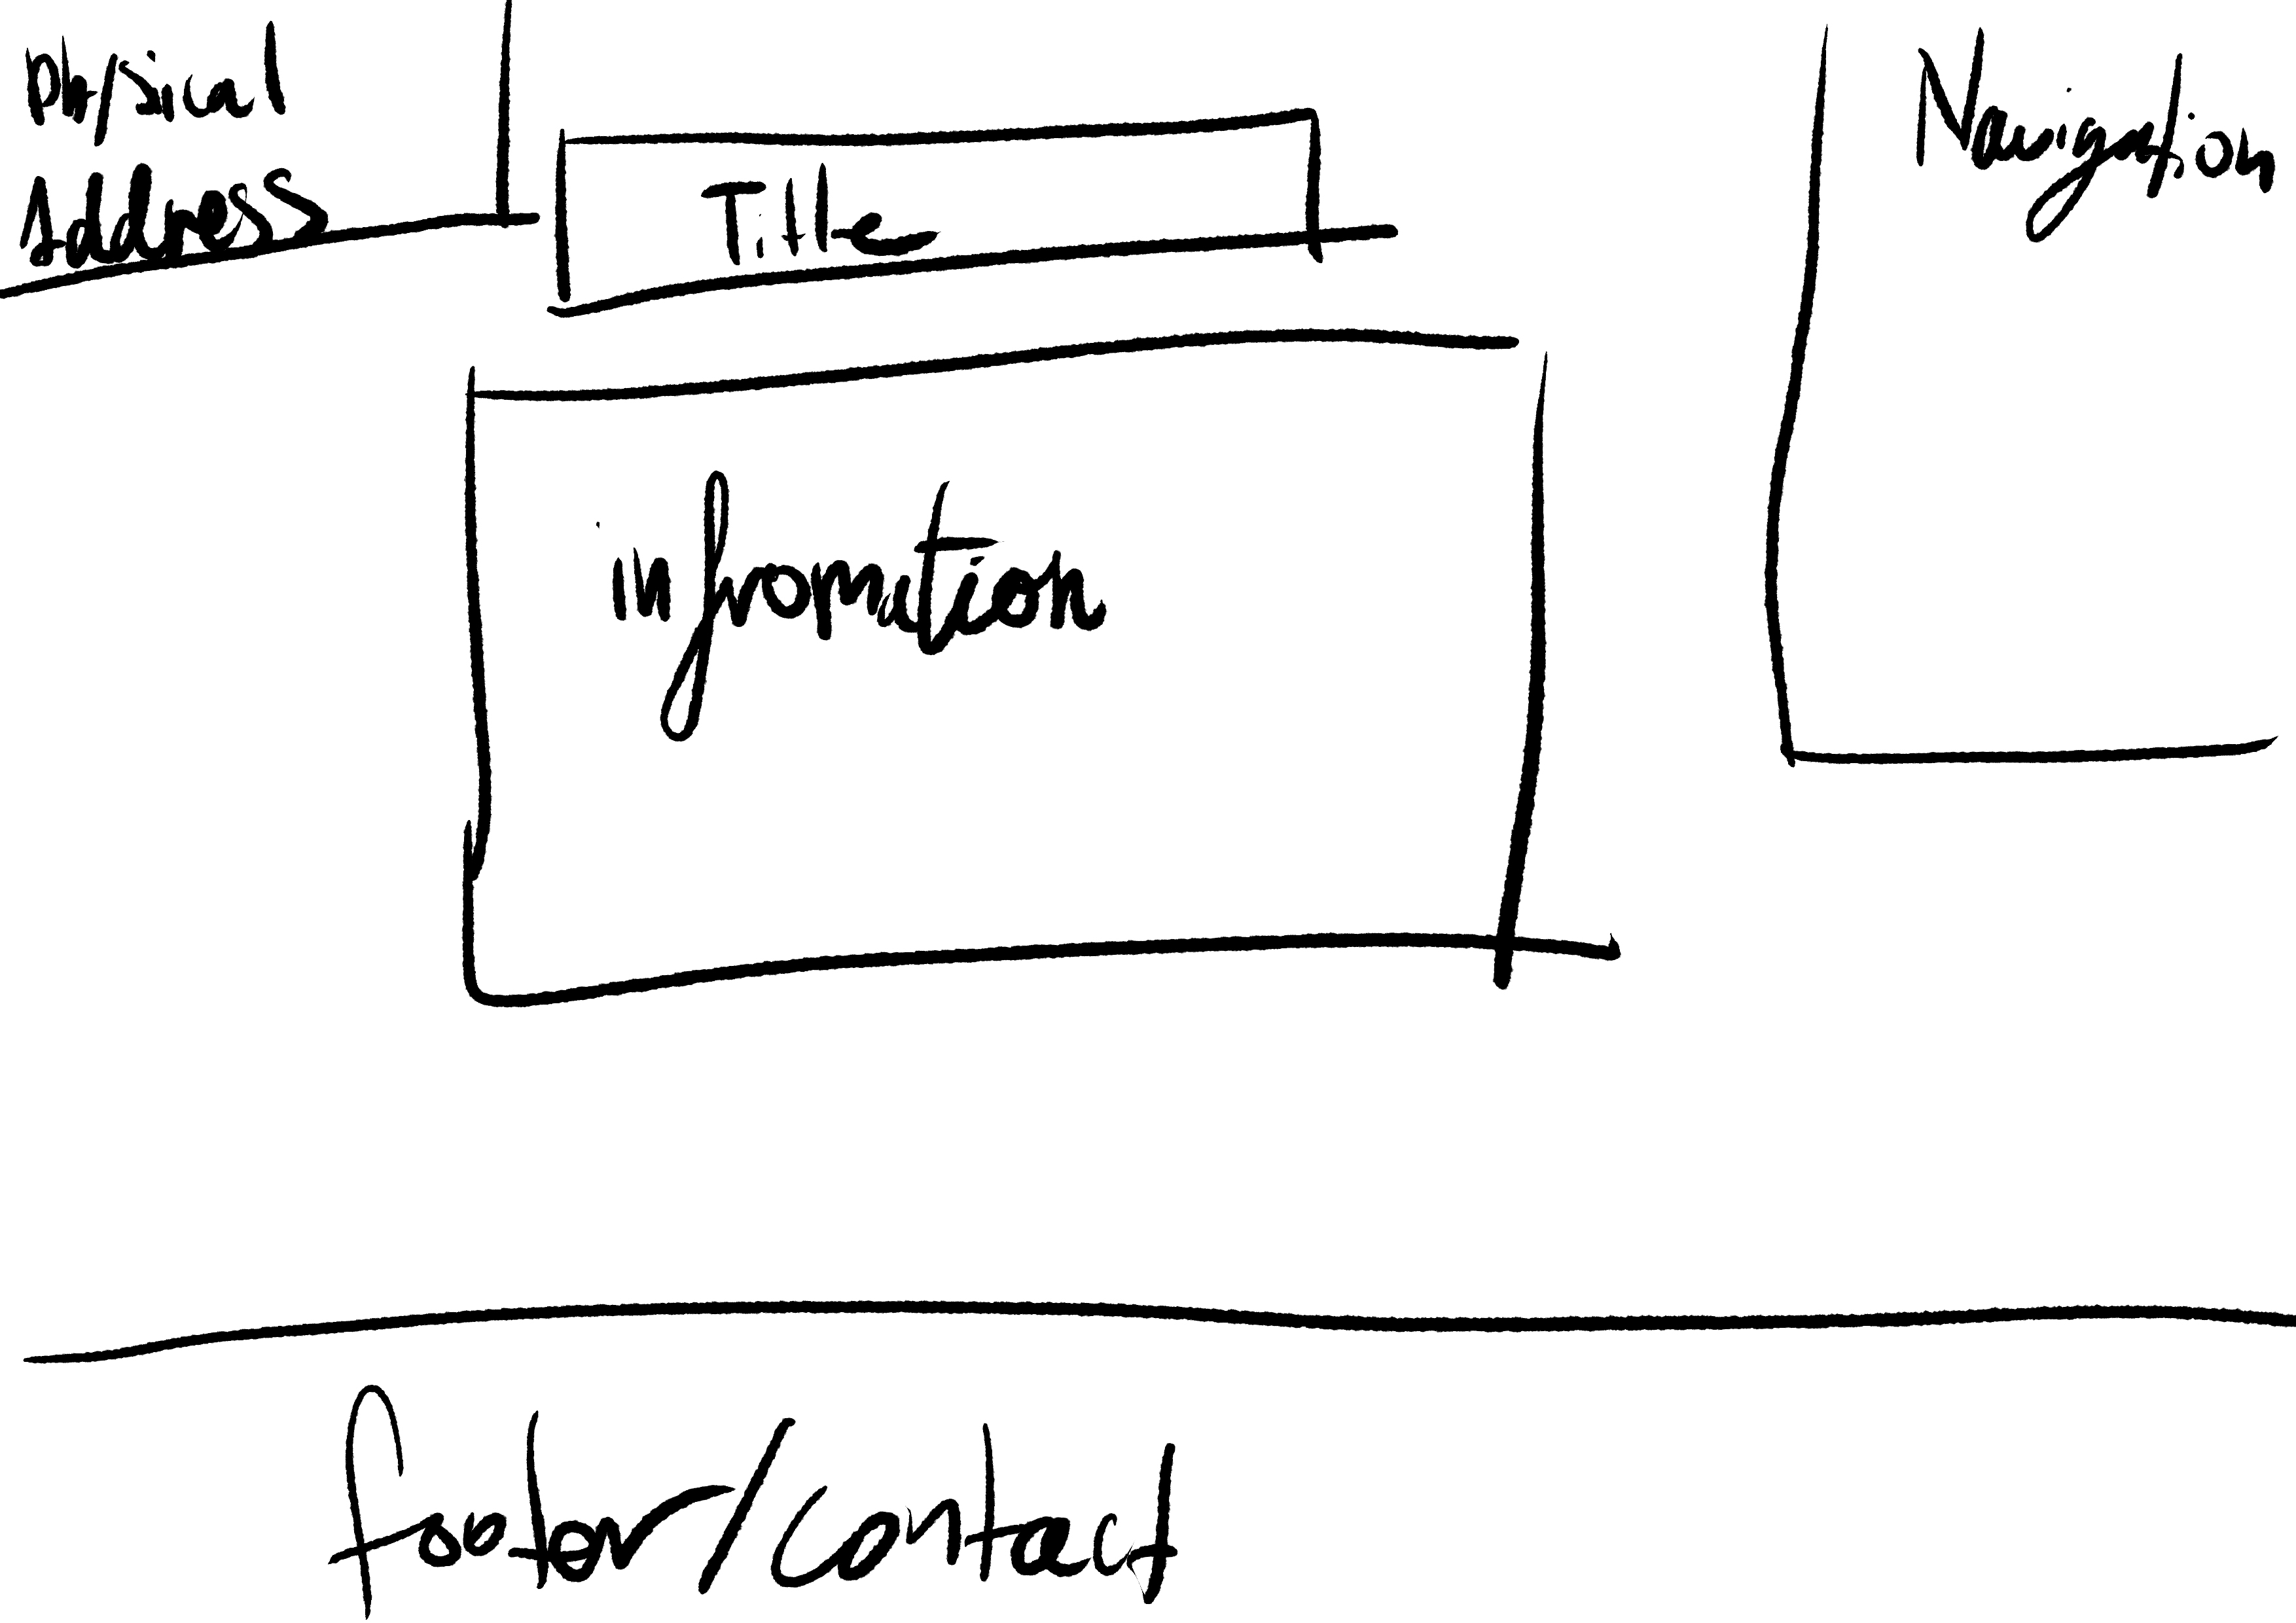 Physical
Address
Title
Navigation
infromation
footer/contact